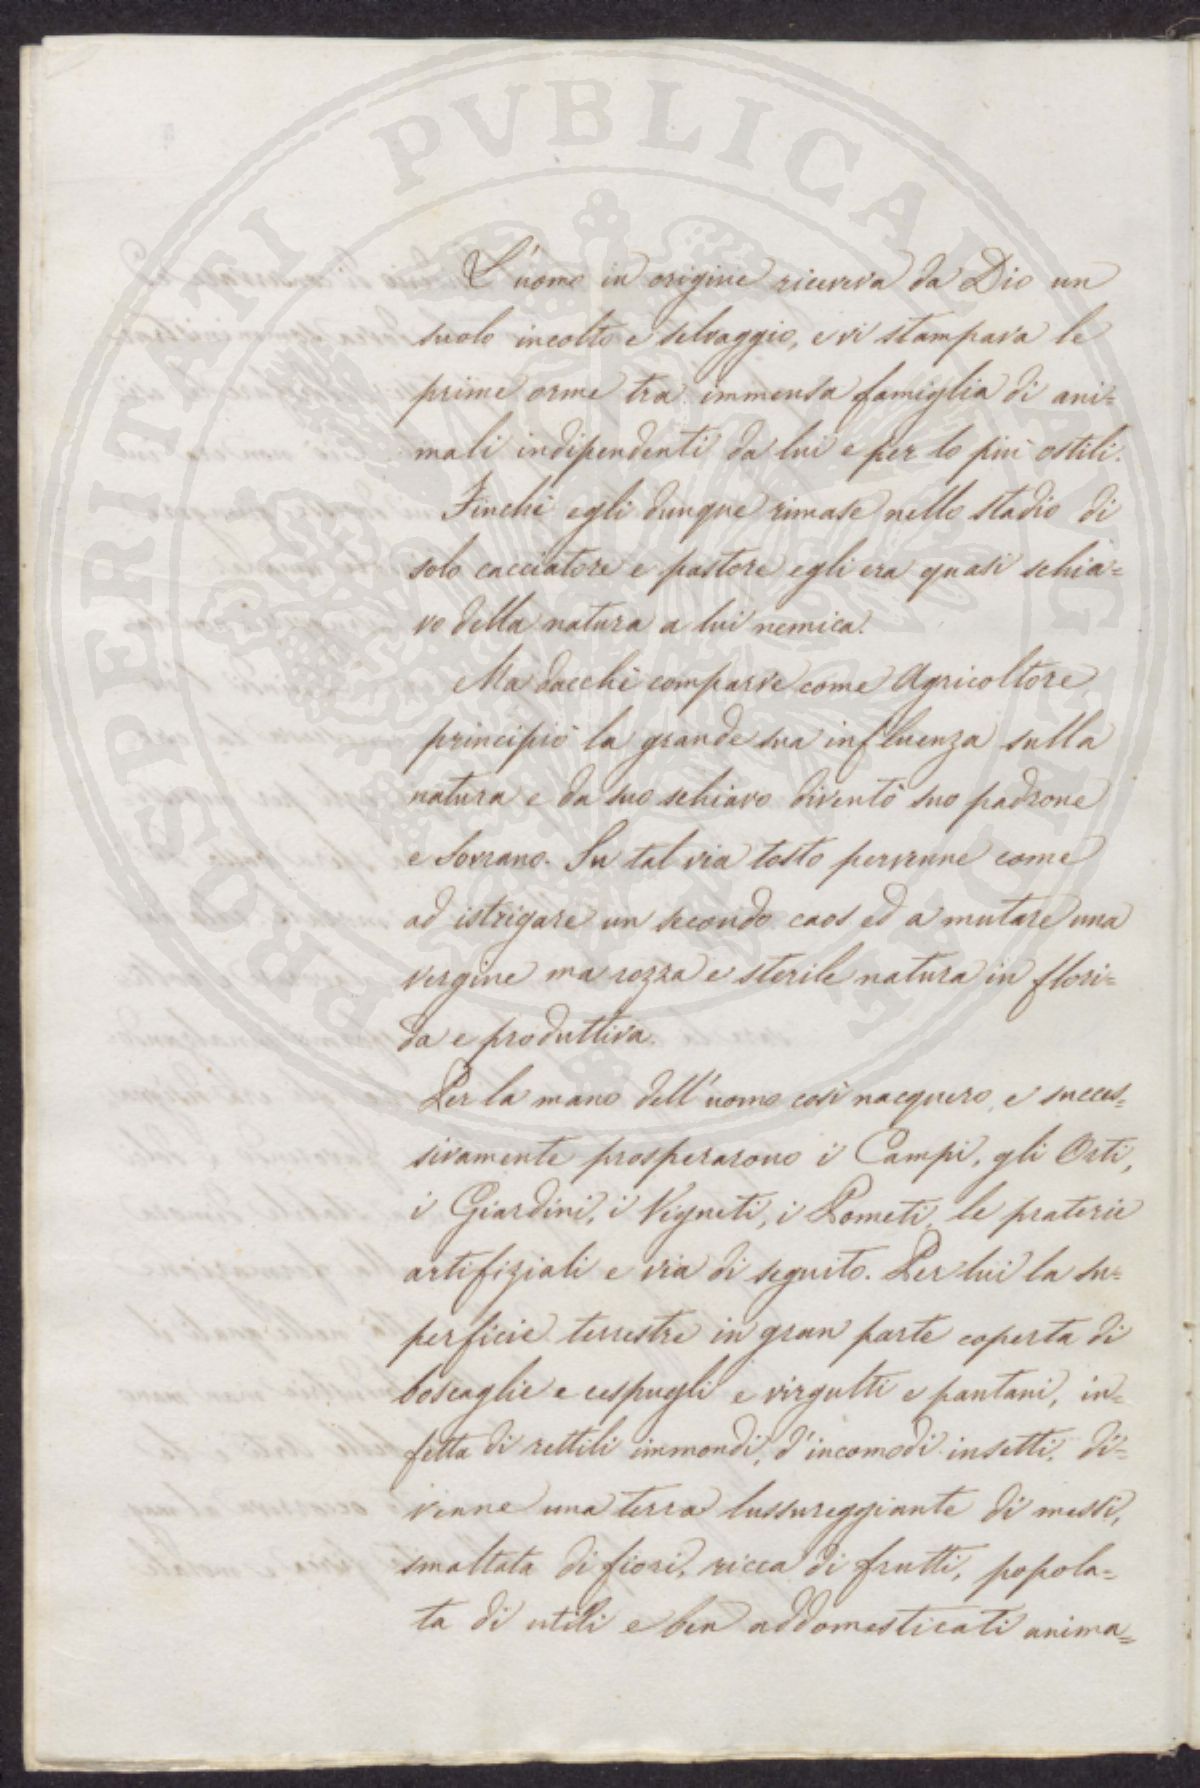 PROSPERITATI PVBLICAE AVGENDAE
L'uomo in origine riceveva da Dio un
suolo incolto e selvaggio, e vi stampava le
prime orme tra immensa famiglia di ani=
mali indipendenti da lui e per lo più ostili.
Finchè egli dunque rimase nello stadio di
solo cacciatore e pastore egli era quasi schia=
vo della natura a lui nemica.
Ma dacchè comparve come Agricoltore
principiò la grande sua influenza sulla
natura e da suo schiavo diventò suo padrone
e Sovrano. Su tal via tosto pervenne come
ad istrigare un secondo caos ed a mutare una
vergine ma rozza e sterile natura in flori=
da e produttiva.
Per la mano dell'uomo così nacquero e succes=
sivamente prosperarono i Campi, gli Orti,
i Giardini, i Vigneti, i Pometi, le praterie
artifiziali e via di seguito. Per lui la su=
perficie terrestre in gran parte coperta di
boscaglie e cespugli e virgulti e pantani, in=
fetta di rettili immondi, d'incomodi insetti, di=
venne una terra lussureggiante di messi,
smaltata di fiori, ricca di frutti, popola=
ta di utili e ben addomesticati anima=